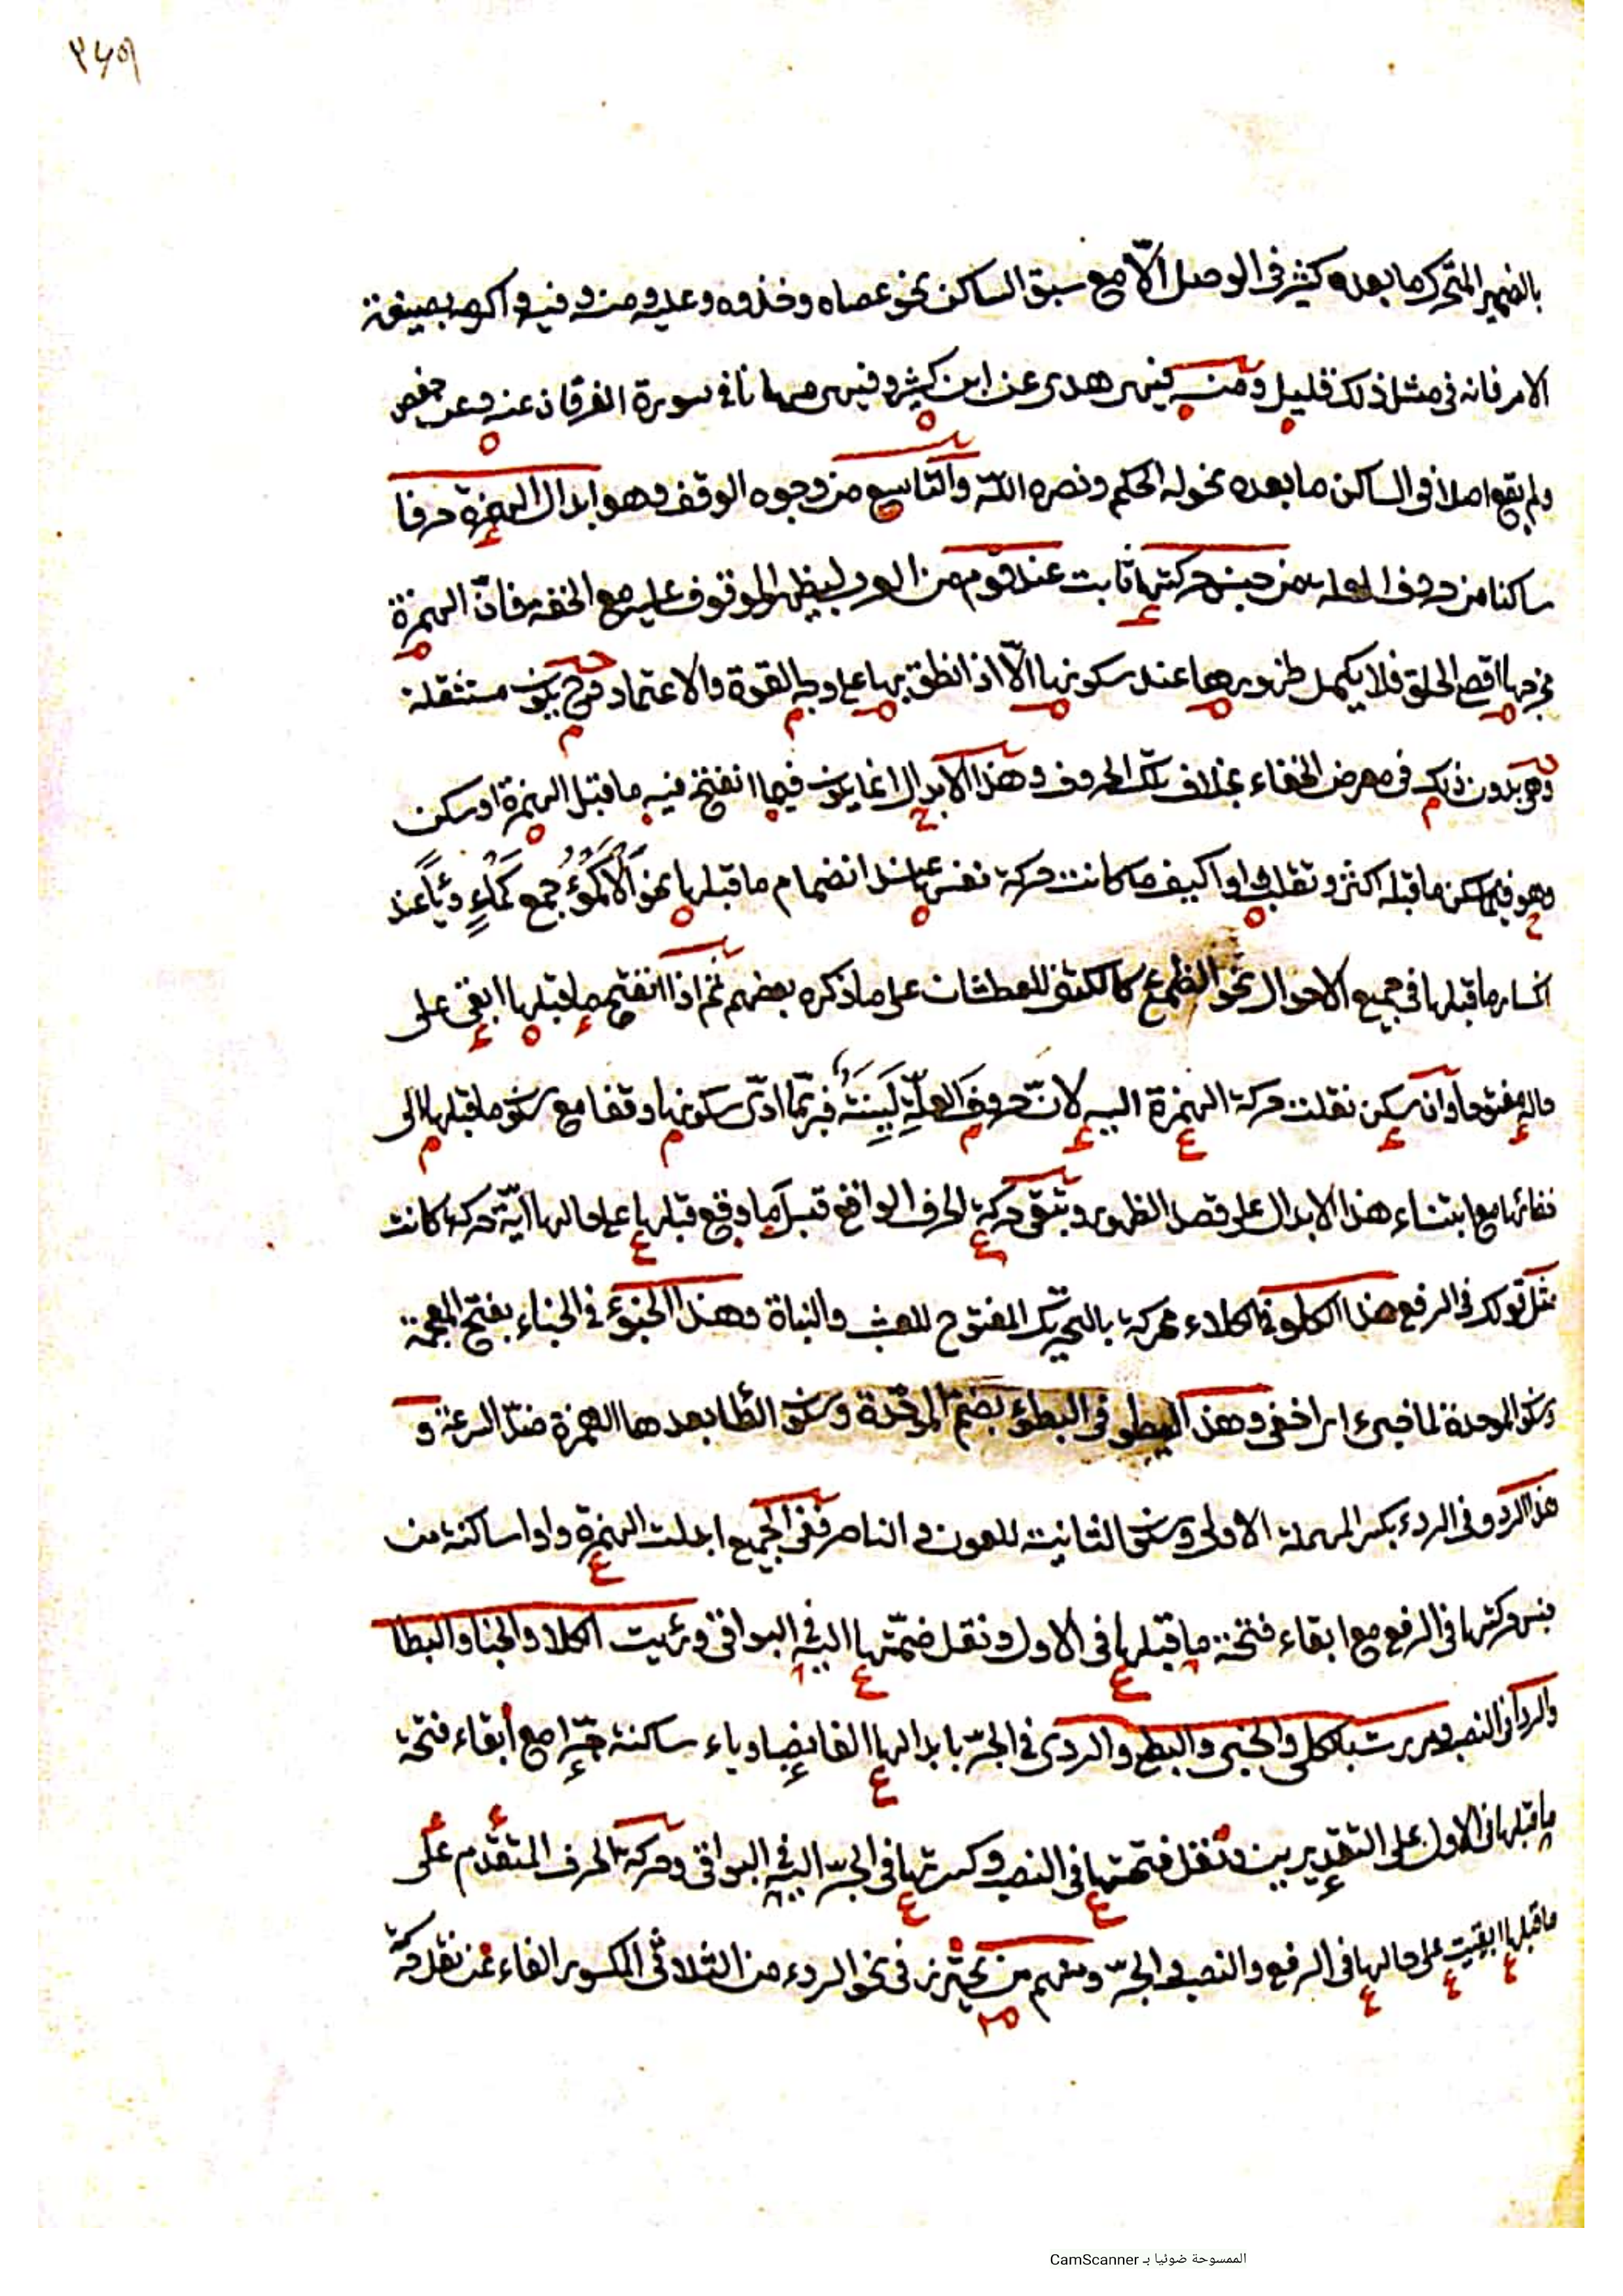 ٣٤٩
بالضمير المتحرك ما بعده كثير في الوصل الّا مع سبق الساكن نحو عصاه وخذوه وعليه ومنه وفيه واكرمه بصيغة
الامر فانه في مثل ذلك قليل ومنه فيهى هدى عن ابن كثير وفيهى مهانا في سورة الفرقان عنه وعن حفص
ولم يقع اصلا في الساكن ما بعده نحو له الحكم ونصره اللّه والتاسع من وجوه الوقف وهو ابدال الهمزة حرفا
ساكنا من حروف العلة من جنس حركتها ثابت عند قوم من العرب ليظهر الموقوف عليه مع الخفة فانّ الهمزة
مخرجها اقصى الحلق فلا يكمل ظهورها عند سكونها الّا اذ انطق بها على وجه القوة والاعتماد وح يكون مستثقلة
وهي بدون ذلك في معرض الخفاء بخلاف تلك الحروف وهذا الابدال انما يكون فيما انفتح فيه ما قبل الهمزة او سكن
وهو فيما سكن ما قبله اكثر وتقلب واوا كيف ما كانت حركة نفسها عند انضمام ما قبلها نحو اَلْاَكْمُؤُ جمع كَمْاءٍ وياءً عند
انكسار ما قبلها في جميع الاحوال نحو الظمئ كالكتف للعطشان على ما ذكره بعضهم ثم اذا انفتح ما قبلها ابقى على
حاله مفتوحا وان سكن نقلت حركة الهمزة اليه لانّ حروف العلّة لَيِّنَةٌ فربّما ادّى سكونها وقفا مع سكون ما قبلها الى
خفائها مع ابتناء هذا الابدال على قصد الظهور وتبقى حركة الحرف الواقع قبل ما وقع قبلها على حالها ايّة حركة كانت
مثل قولك في الرفع هذا الكلو في الكلاء محركة بالتحريك المفتوح للعشب والنباة وهذا الخبو في الخباء بفتح المعجمة
وسكون الموحدة لما خبىء اى اخفى وهذا البطو في البطؤ بضمّ الموحّدة وسكون الطا بعدها الهمزة ضدّ السرعة و
هذا الردو في الردء بكسر المهملة الاولى وسكون الثانية للعون والناصر ففى الجميع ابدلت الهمزة واوا ساكنة من
جنس حركتها في الرفع مع ابقاء فتحة ما قبلها في الاول ونقل ضمّتها اليه في البواقى ورئيت الكلا والخبا والبطا
والردا في النصب ومررت بالكلى والخبى والبطى والردى في الجرّ بابدالها الفا نصبا وياء ساكنة جرّا مع ابقاء فتحة
ما قبلها في الاول على التقديرين ونقل فتحتها في النصب وكسرتها في الجرّ اليه في البواقى وحركة الحرف المتقدّم على
ما قبلها ابقيت على حالها في الرفع والنصب والجرّ ومنهم من يحترز في نحو الردء من الثلاثى المكسور الفاء عن نقل حركة
الممسوحة ضوئيا بـ CamScanner